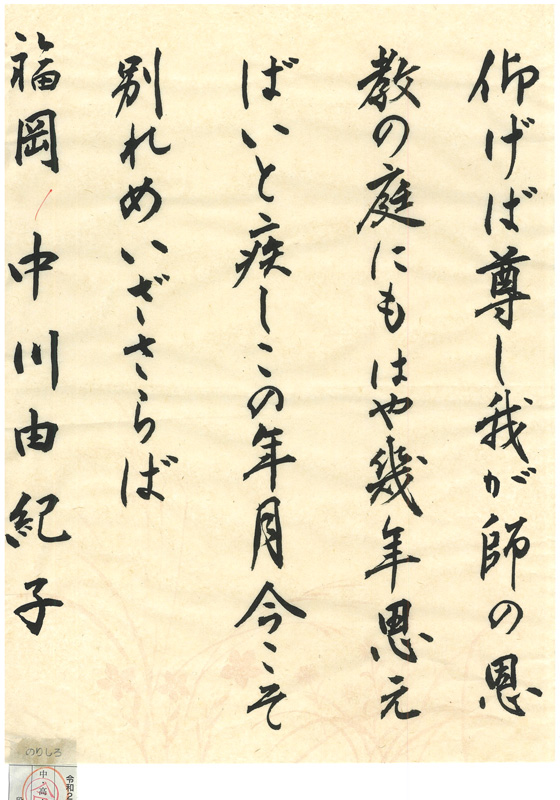 仰げば尊し我が師の恩
教の庭にもはや幾年思え
ばいと疾しこの年月今こそ
別れめいざさらば
福岡 中川由紀子
のりしろ
令和2
中・高